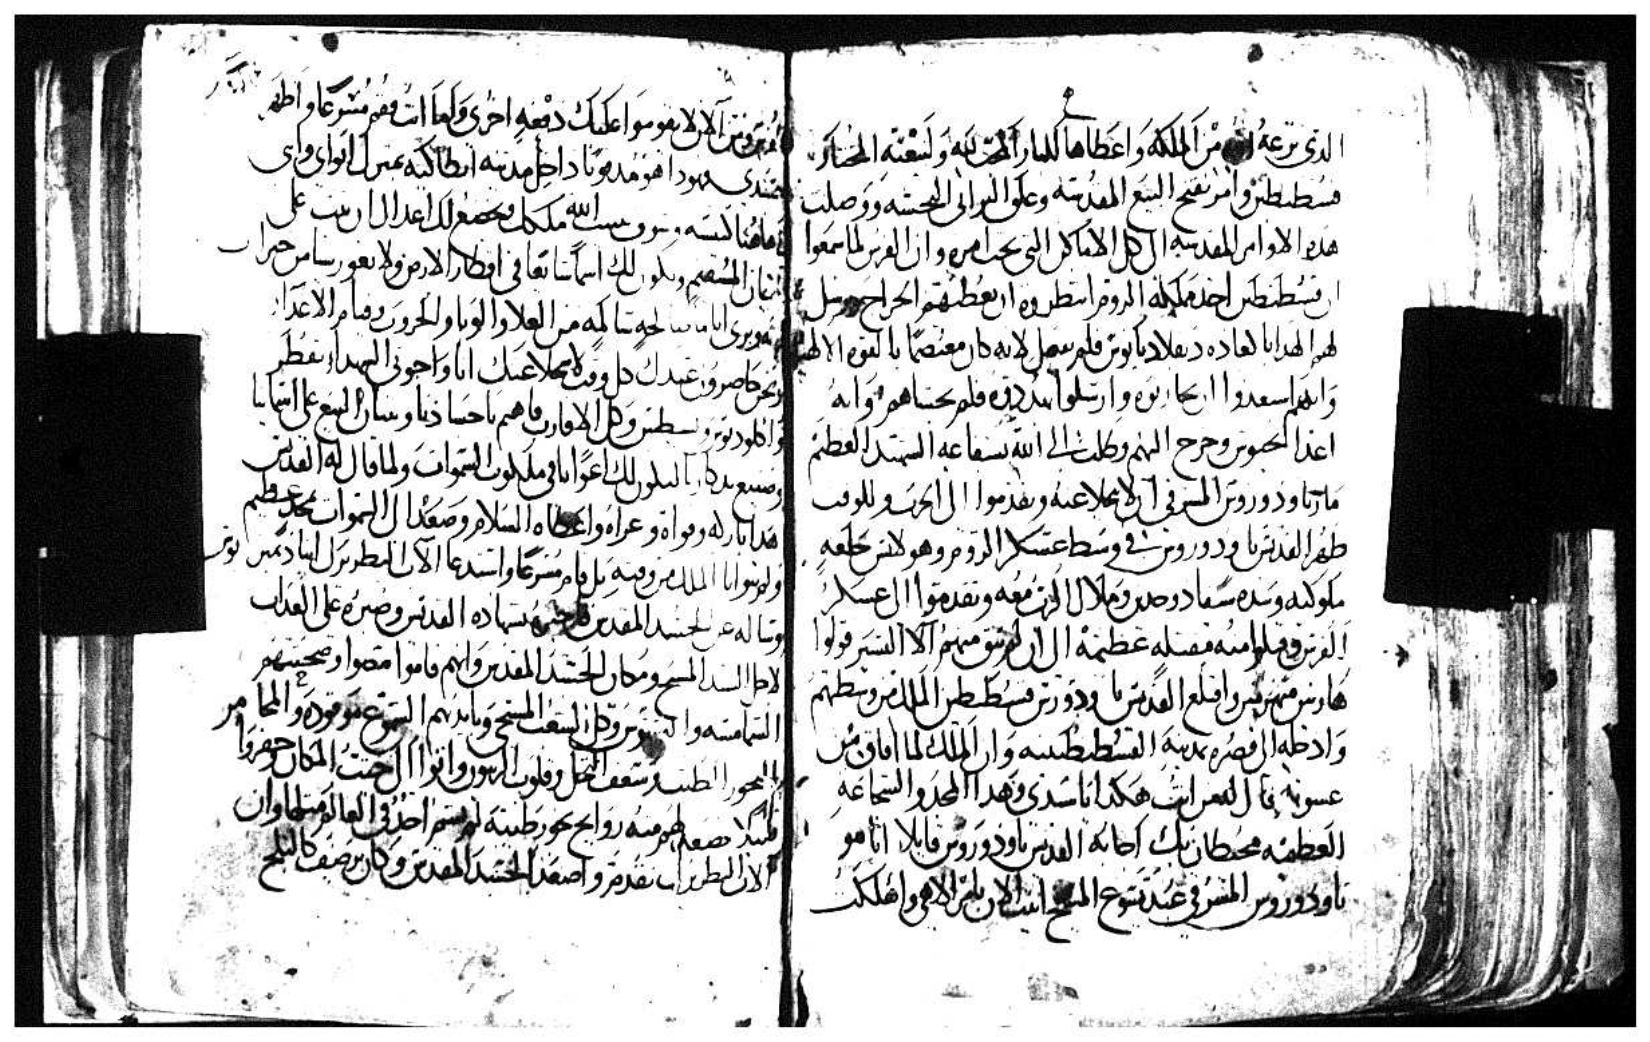 الذى نزعه الله من الملكة واعطاها للبار المحب لله ولبيعته المختاره
قسطنطين وامر بفتح البيع المقدسه وغلق البرابى النجسه ووصلت
هذه الاوامر المقدسه الى كل الاماكن التى تحت امره وان الفرس لما سمعوا
ان قسطنطين اخذ مملكة الروم انتظروه ان يعطيهم الخراج ويرسل
لهم الهدايا كعاده دقلاديانوس فلم يفعل لانه كان معتصما بالقوه الالهيه
وانهم استعدوا ان يحاربوه وارسلوا فلم يخشاهم وانه
اعد الجيوش وخرج اليهم وطلب الى الله بشفاعه الشهيد العظيم
مارى تاودوروس المشرقى ان لا يتخلا عنه وتقدموا الى الحرب وللوقت
ظهر القديس تاودوروس فى وسط عسكر الروم وهو لابس خلعه
ملوكيه وبيده سيفا دو حدين وملاك الرب معه وتقدموا الى عسكر
الفرس وقتلوا منه مقتله عظيمة الى ان لم يبق منهم الا اليسير فولوا
هاربين منهزمين واقلع القديس تاودوروس قسطنطين الملك من وسطهم
وادخله الى قصره بمدينة القسطنطينيه وان الملك لما افاق من
غشوته قال لمن انت هكذا يا سيدى وهذا المجد والشجاعه
العظيمه محيطان بك اجابه القديس تاودوروس قايلا انا هو
تاودوروس المشرقى عبد يسوع المسيح اتيت الان بامر الاهى واهلكت
الفرس الان لا يقوموا عليك دفعه اخرى ولما انت فقم مسرعا واطلب
جسدى فهوذا هو مدفونا داخل مدينه انطاكيه بمنزل ابواى واى
من ماضينا كنيسه وسوف يثبت الله ملكك ويخضع لك اعداك ان تثبت على
الايمان المستقيم ويكون لك اسما شايعا فى اقطار الارض ولا يعوز شيا من خيرات
الله ويرى اياما صالحه سالمه من الغلا والوبا والحروب وقيام الاعدا
ونحن حاضرون عندك كل وقت لا نتخلا عنك انا واخوتى الشهداء بقطر
واقلوديوس ويسطس وكل الاقارب فاهتم باجسادنا وبنيان البيع على اسماينا
وصنيع تذكارنا ليكون لك اعوانا فى ملكوت السموات ولما قال له القديس
هذا باركه وقواه وعزاه واعطاه السلام وصعد الى السموات بمجد عظيم
ولم يتوانا الملك من وقته بل قام مسرعا واستدعا الاب البطريرك انبا ديمتريوس
وساله عن الجسد المقدس فاخبره بشهاده القديس وصبره على العذاب
لاجل السيد المسيح ومكان الجسد المقدس وانهم قاموا مضوا وصحبتهم
الشمامسه والقسوس وكل الشعب المسيحى وبايديهم الشموع موقوده والمجامر
بالبخور الطيب وسعف النخل وقلوب الزيتون واتوا الى حيث المكان وحفروا
قليلا فصعد لهم منه روايح بخور طيبة لم يشم احد فى العالم مثلها وان
الاب البطريرك تقدم واصعد الجسد المقدس وكان يضى كالثلج